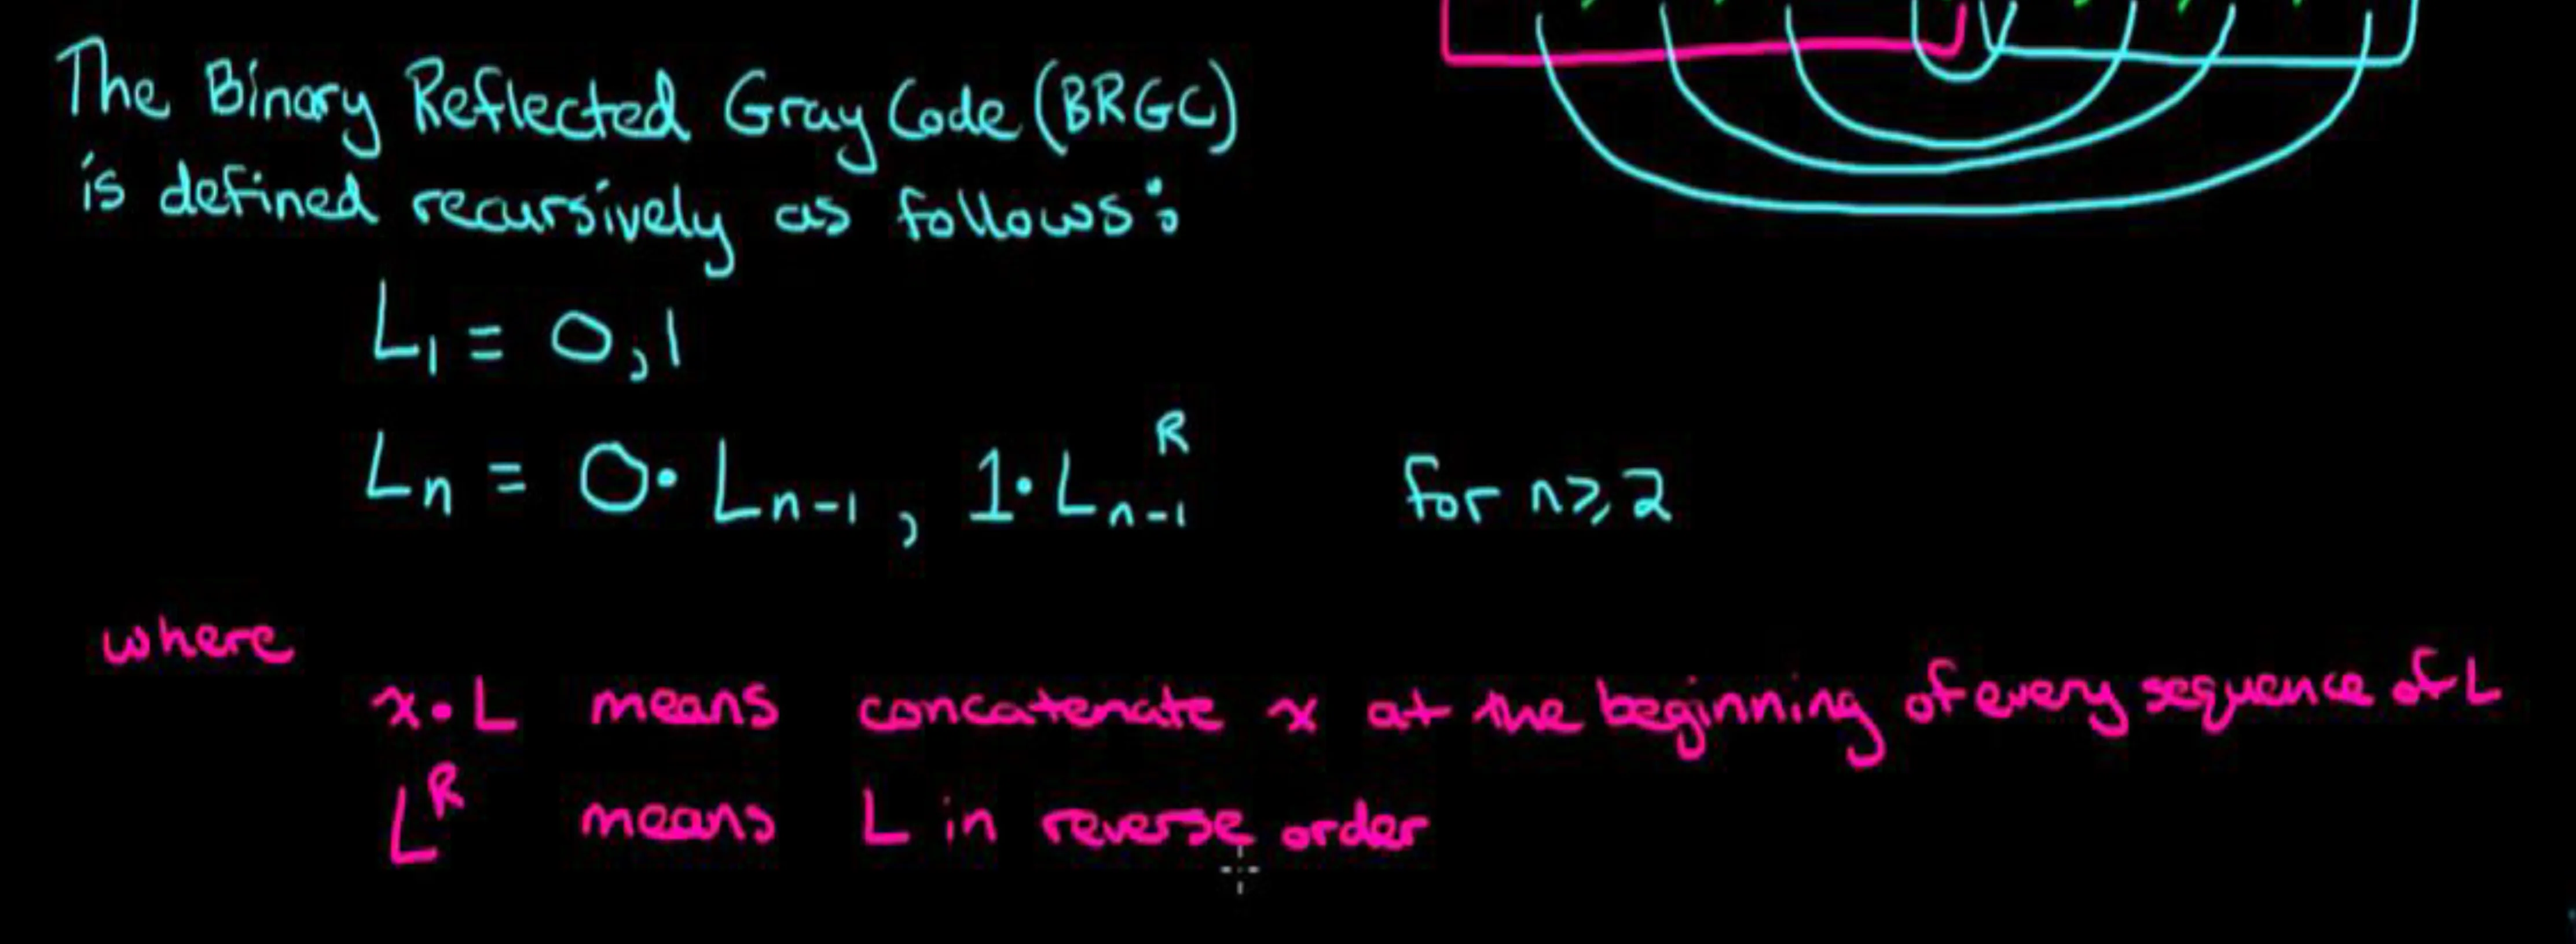 The Binary Reflected Gray Code (BRGC)
is defined recursively as follows:
L₁ = 0, 1
Lₙ = 0·Lₙ₋₁, 1·Lₙ₋₁ᴿ for n ≥ 2
where
x·L means concatenate x at the beginning of every sequence of L
Lᴿ means L in reverse order